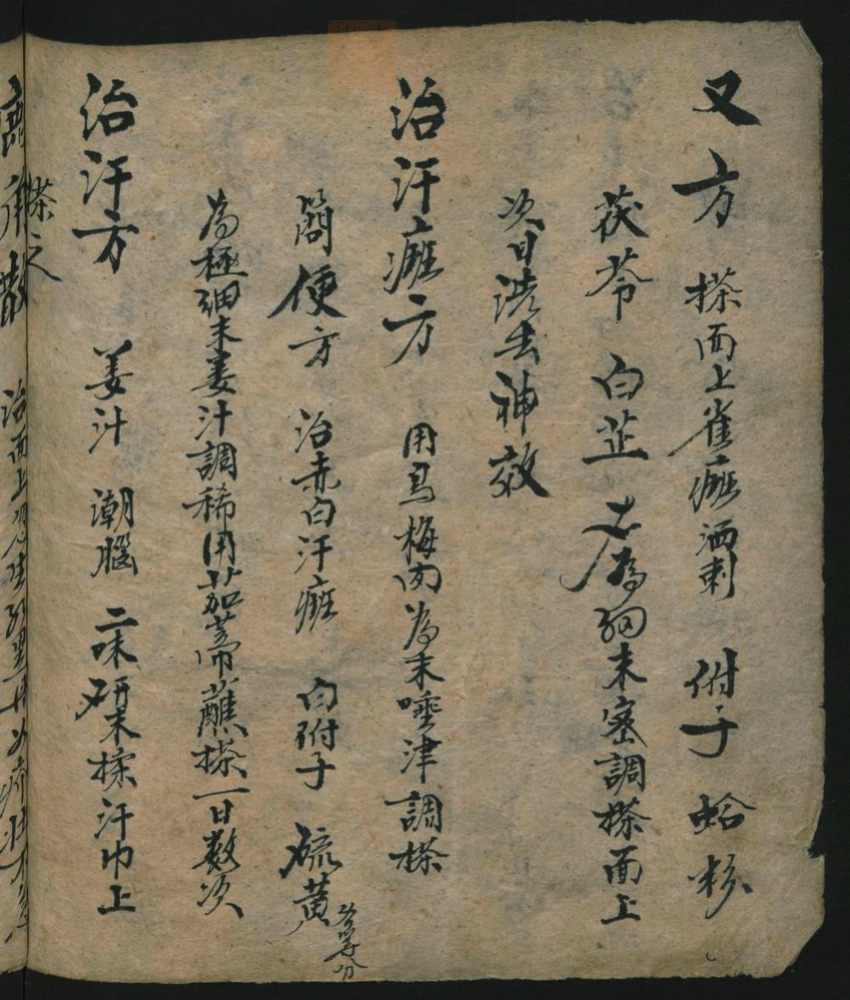 又方 搽面上雀癍洒刺 附子 蛤粉
茯苓 白芷 共為細末密調搽面上
次日洗去神效
治汗癍方 用烏梅肉為末唾津調搽
簡便方 治赤白汗癍 白附子 硫黃各等分
為極細末姜汁調稀用茄蒂蘸搽一日数次
治汗方 姜汁 潮腦 二味研末搽汗巾上
搽之
散 治面上